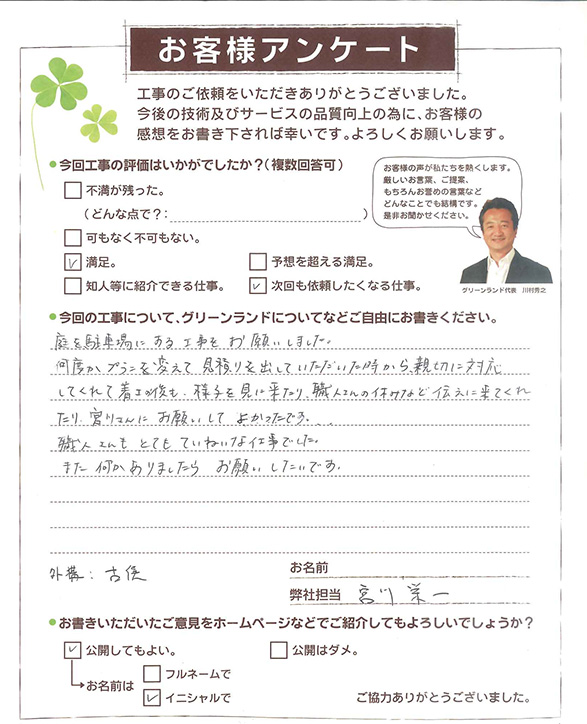 お客様アンケート
工事のご依頼をいただきありがとうございました。
今後の技術及びサービスの品質向上の為に、お客様の
感想をお書き下されば幸いです。よろしくお願いします。
●今回工事の評価はいかがでしたか?(複数回答可)
不満が残った。
(どんな点で?: )
可もなく不可もない。
満足。 予想を超える満足。
知人等に紹介できる仕事。 次回も依頼したくなる仕事。
お客様の声が私たちを熱くします。
厳しいお言葉、ご提案、
もちろんお誉めの言葉など
どんなことでも結構です。
是非お聞かせください。
グリーンランド代表 川村秀之
●今回の工事について、グリーンランドについてなどご自由にお書きください。
庭を駐車場にする工事をお願いしました。
何度かプランを変えて見積りを出していただいた時から、親切に対応
してくれて着工後も、様子を見に来たり、職人さんの休みなど伝えに来てくれ
たり、宮川さんにお願いしてよかったです。
職人さんもとてもていねいな仕事でした。
また何かありましたらお願いしたいです。
外構:
お名前
弊社担当 宮川 栄一
●お書きいただいたご意見をホームページなどでご紹介してもよろしいでしょうか?
公開してもよい。 公開はダメ。
お名前は フルネームで
イニシャルで
ご協力ありがとうございました。